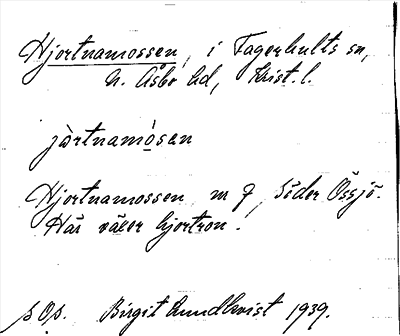 Hjortnamossen, i Fagerhults sn,
N. Åsbo hd, Krist. l.
jàrtnamòsan
Hjortnamossen m f, Söder Össjö.
Här växer hjortron.
s Op. Birgit Rundkvist 1939.